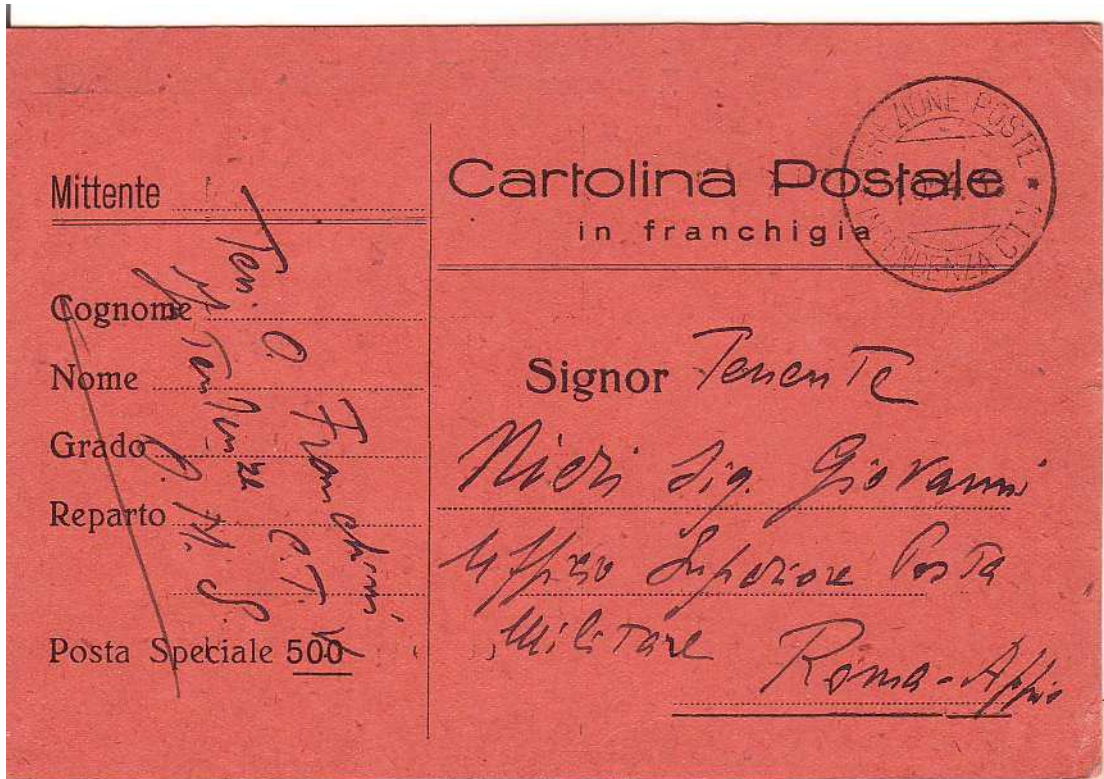 Mittente
Cognome
Nome
Grado
Reparto
Posta Speciale 500
Ten. O. Franchini
C.T.V.
P. M. S.
Cartolina Postale
in franchigia
DIREZIONE POSTE
INTENDENZA C.T.V.
Signor Tenente
Nieri Sig. Giovanni
Ufficio Superiore Posta
Militare
Roma-Appio